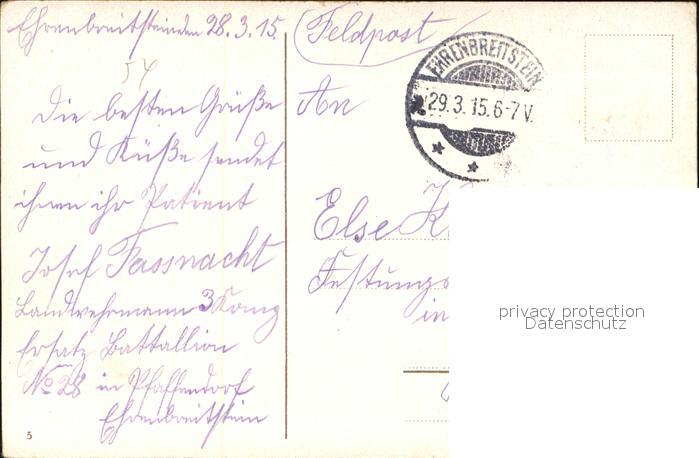 Ehrenbreitstein den 28.3.15.
54
Die besten Grüße
und Küße sendet
ihnen ihr Patient
Josef Fassnacht
Landwehrmann 3 Komp
Ersatz Battallion
No 28 in Pfaffendorf
Ehrenbreitstein
5
Feldpost
EHRENBREITSTEIN
29.3.15.6-7V.
An
Else
Festungs
in
privacy protection
Datenschutz